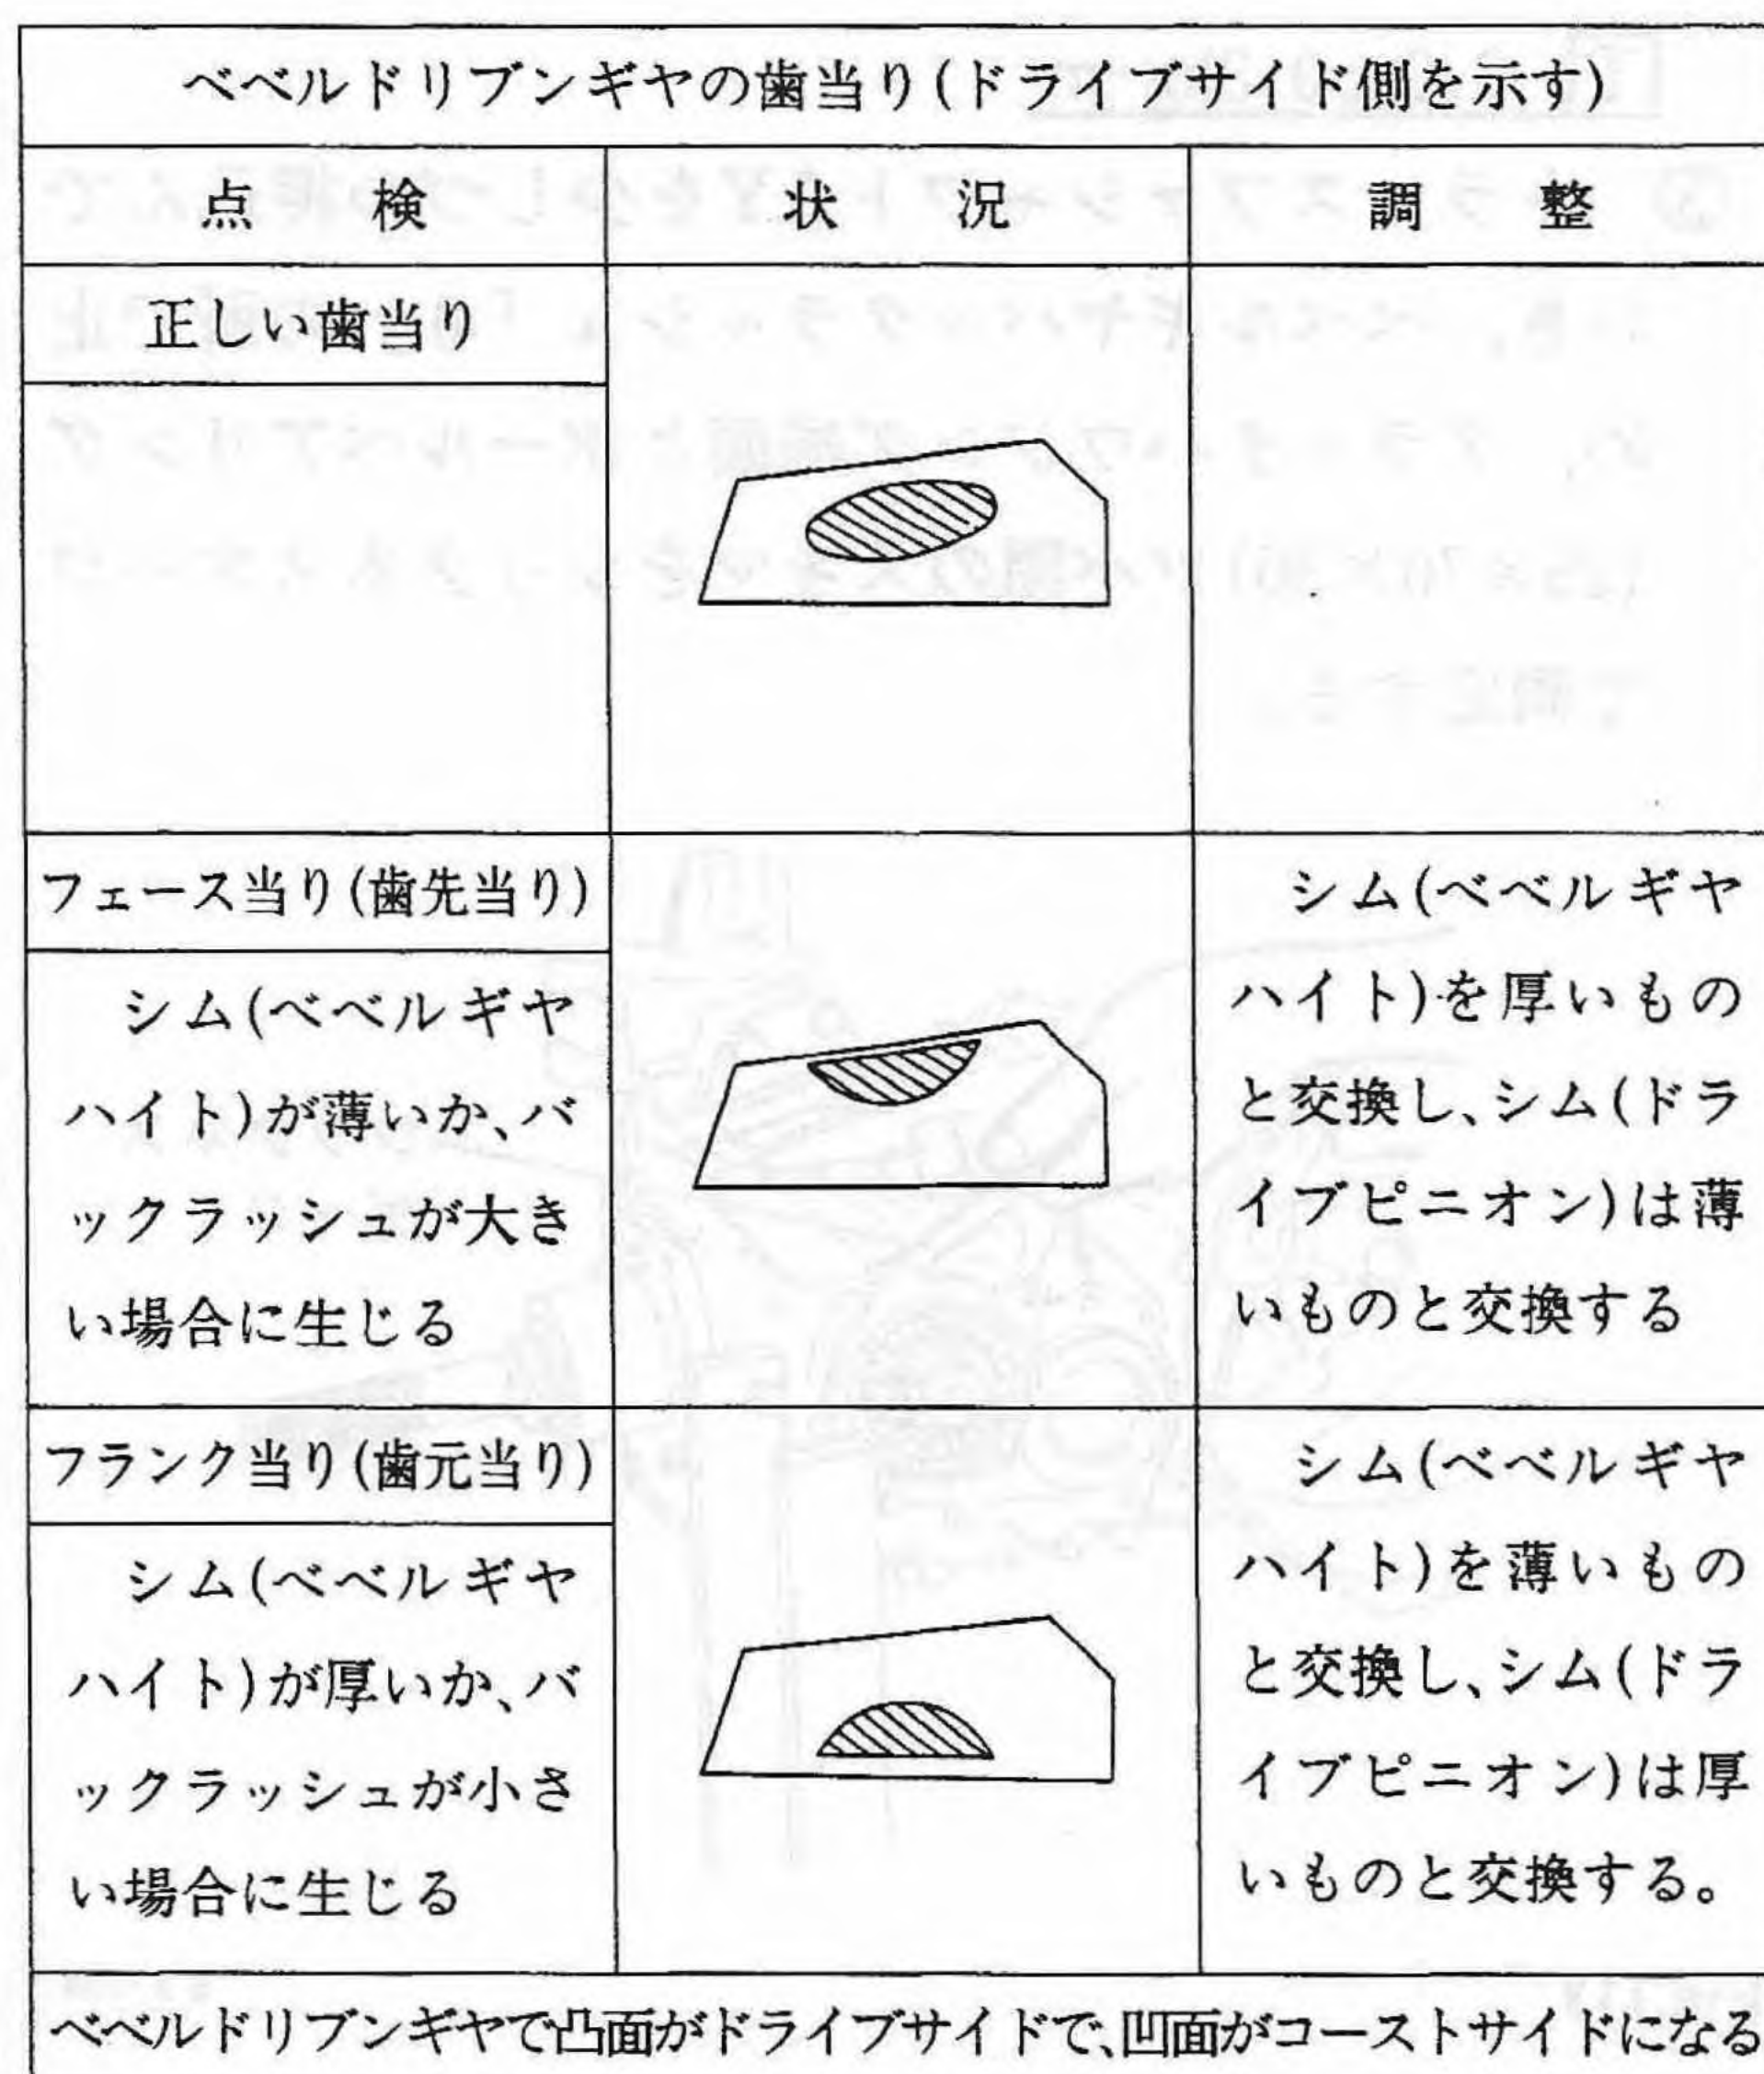 ベベルドリブンギヤの歯当り(ドライブサイド側を示す)
点検
状況
調整
正しい歯当り
フェース当り(歯先当り)
シム(ベベルギヤ
ハイト)が薄いか、バ
ックラッシュが大き
い場合に生じる
シム(ベベルギヤ
ハイト)を厚いもの
と交換し、シム(ドラ
イブピニオン)は薄
いものと交換する
フランク当り(歯元当り)
シム(ベベルギヤ
ハイト)が厚いか、バ
ックラッシュが小さ
い場合に生じる
シム(ベベルギヤ
ハイト)を薄いもの
と交換し、シム(ドラ
イブピニオン)は厚
いものと交換する。
ベベルドリブンギヤで凸面がドライブサイドで、凹面がコーストサイドになる